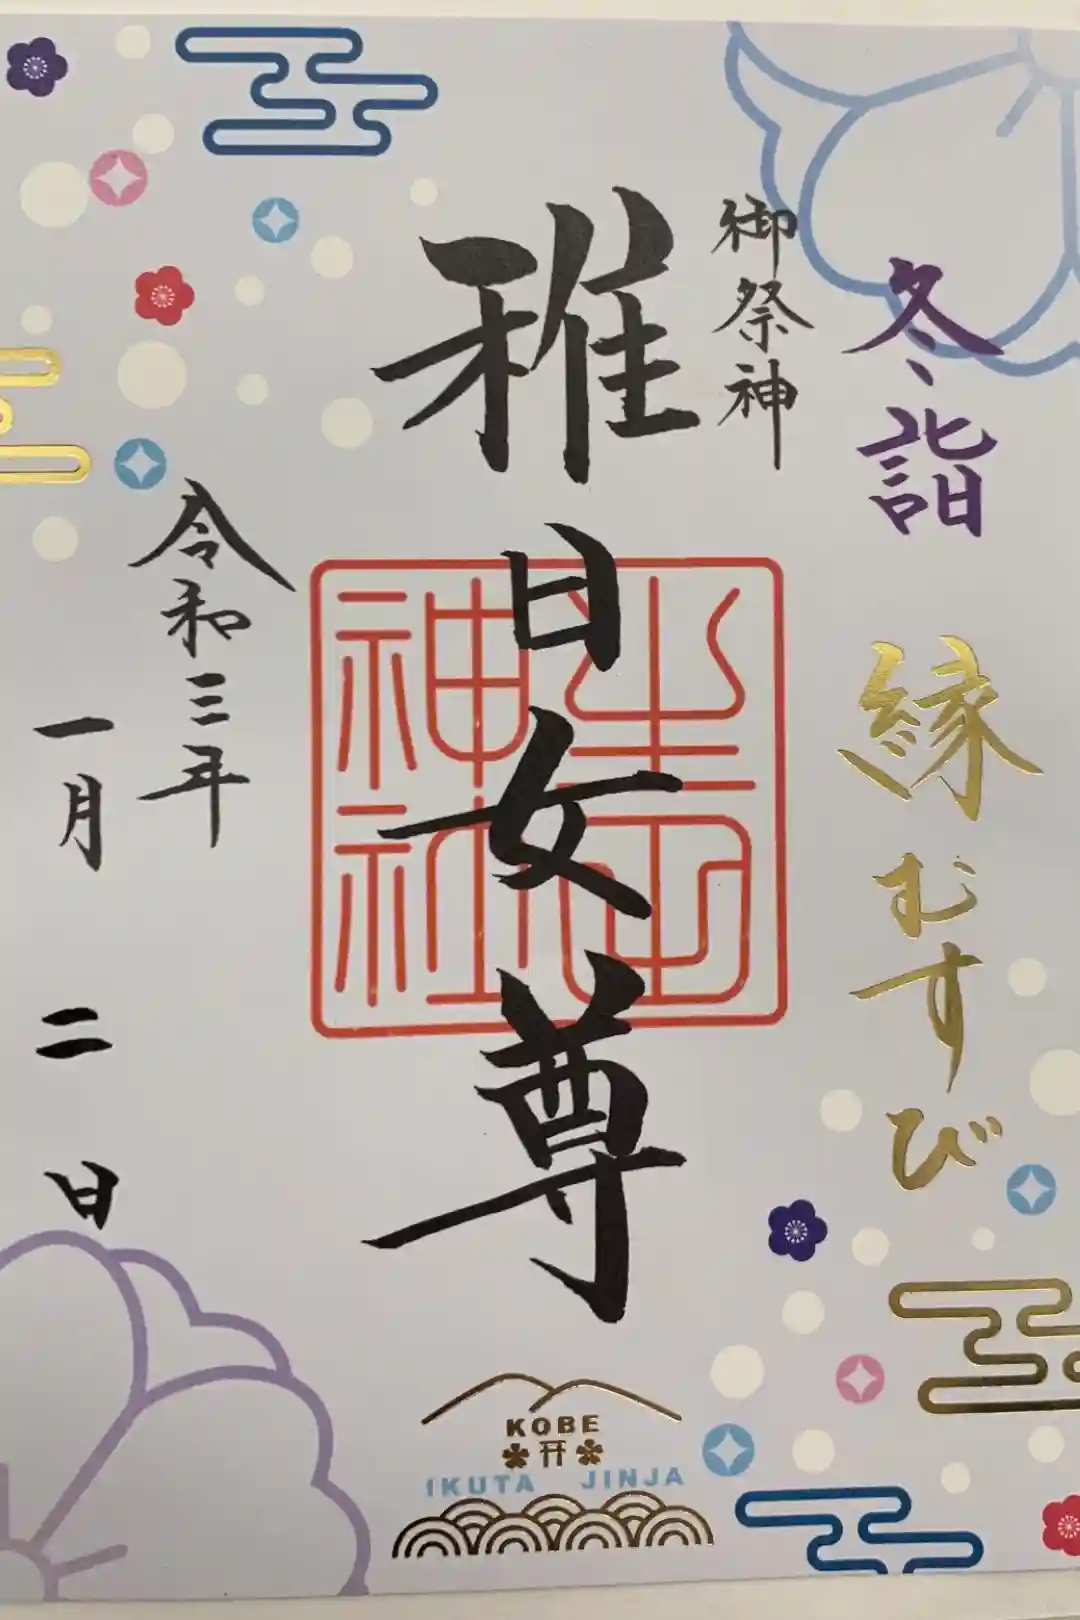 冬詣
縁むすび
御祭神
稚日女尊
生田
神社
令和三年
一月二日
KOBE
IKUTA JINJA